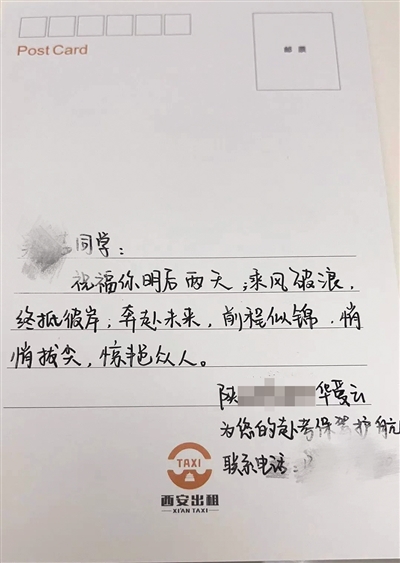 Post Card
邮票
同学：
祝福你明后两天，乘风破浪，
终抵彼岸；奔赴未来，前程似锦，悄
悄拔尖，惊艳众人。
陕 华爱云
为您的赴考保驾护航
联系电话：
TAXI
西安出租
XI'AN TAXI